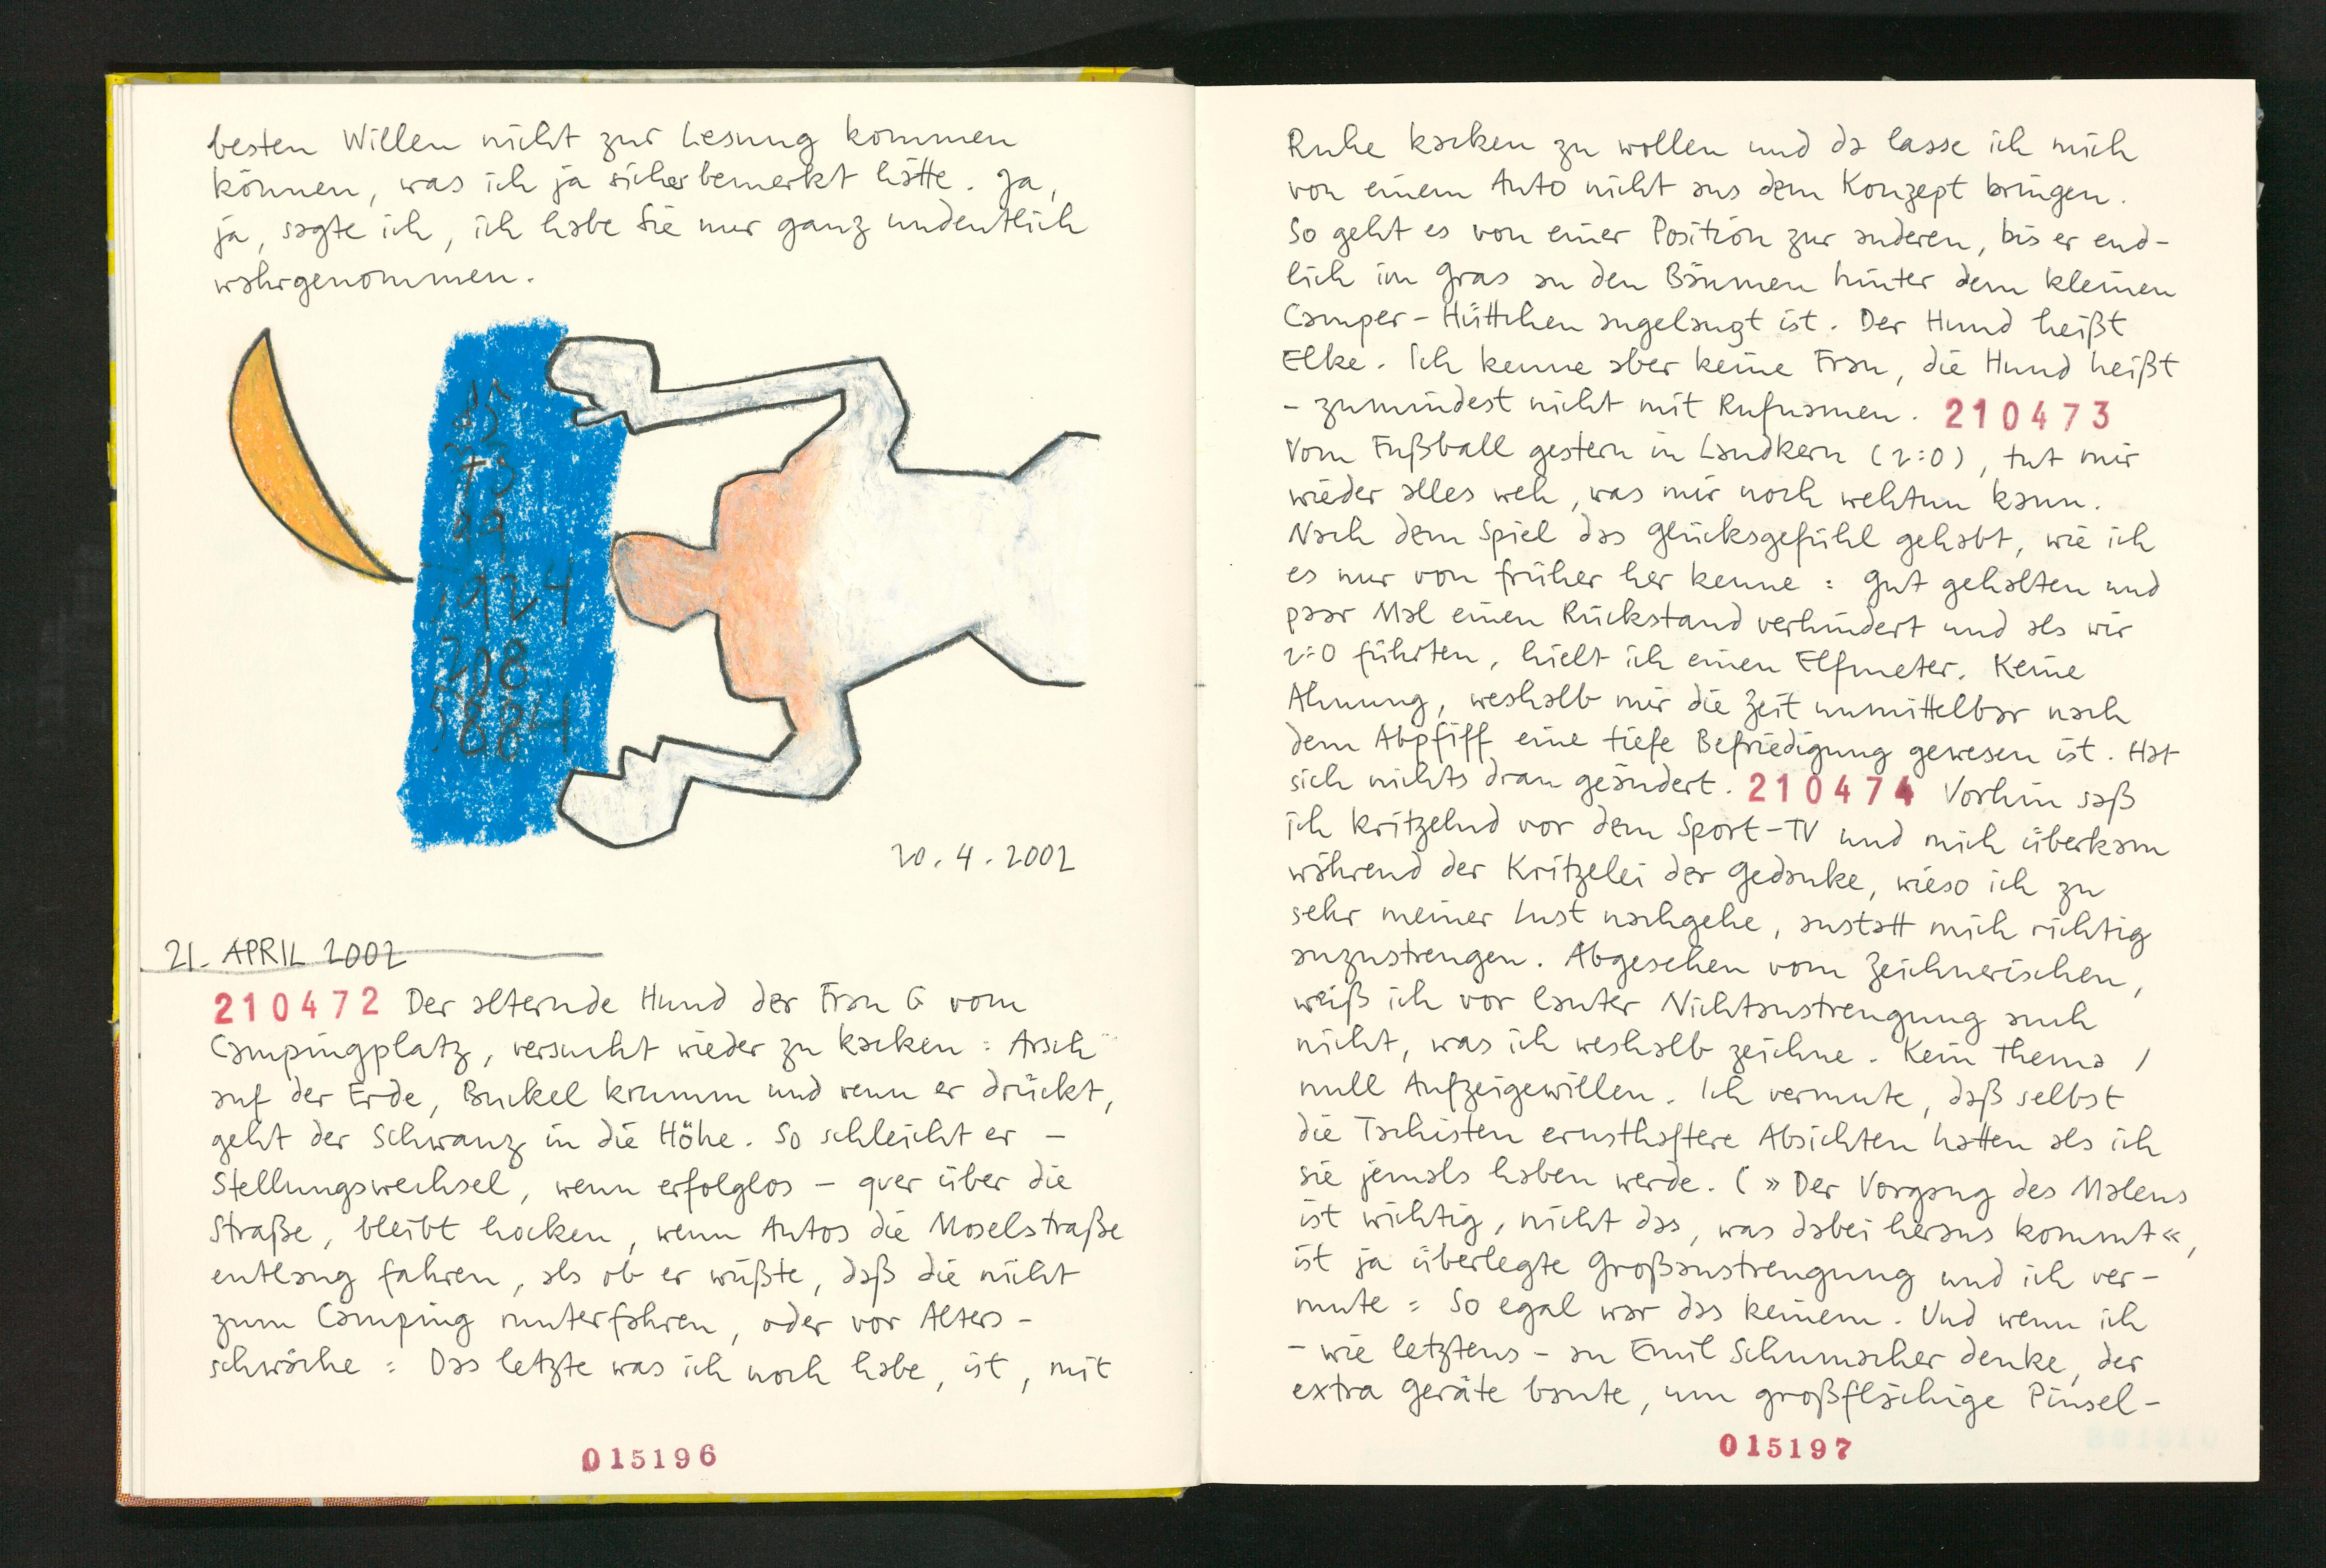 besten Willen nicht zur Lesung kommen
können, was ich ja sicher bemerkt hätte. Ja,
ja, sagte ich, ich habe Sie nur ganz undeutlich
wahrgenommen.
73
99
7924
208
5884
20.4.2002
21. APRIL 2002
210472 Der alternde Hund der Frau G vom
Campingplatz, versucht wieder zu kacken: Arsch
auf der Erde, Buckel krumm und wenn er drückt,
geht der Schwanz in die Höhe. So schleicht er –
Stellungswechsel, wenn erfolglos – quer über die
Straße, bleibt hocken, wenn Autos die Moselstraße
entlang fahren, als ob er wüßte, daß die nicht
zum Camping runterfahren, oder vor Alters-
schwäche: Das letzte was ich noch habe, ist, mit
015196
Ruhe kacken zu wollen und da lasse ich mich
von einem Auto nicht aus dem Konzept bringen.
So geht es von einer Position zur anderen, bis er end-
lich im Gras an den Bäumen hinter dem kleinen
Camper-Hüttchen angelangt ist. Der Hund heißt
Elke. Ich kenne aber keine Frau, die Hund heißt
– zumindest nicht mit Rufnamen. 210473
Vom Fußball gestern in Landkern (2:0), tut mir
wieder alles weh, was mir noch wehtun kann.
Nach dem Spiel das Glücksgefühl gehabt, wie ich
es nur von früher her kenne: Gut gehalten und
paar Mal einen Rückstand verhindert und als wir
2:0 führten, hielt ich einen Elfmeter. Keine
Ahnung, weshalb mir die Zeit unmittelbar nach
dem Abpfiff eine tiefe Befriedigung gewesen ist. Hat
sich nichts dran geändert. 210474 Vorhin saß
ich kritzelnd vor dem Sport-TV und mich überkam
während der Kritzelei der Gedanke, wieso ich zu
sehr meiner Lust nachgehe, anstatt mich richtig
anzustrengen. Abgesehen vom Zeichnerischen,
weiß ich vor lauter Nichtanstrengung auch
nicht, was ich weshalb zeichne. Kein Thema /
null Aufzeigewillen. Ich vermute, daß selbst
die Tachisten ernsthaftere Absichten hatten als ich
sie jemals haben werde. (»Der Vorgang des Malens
ist wichtig, nicht das, was dabei heraus kommt«,
ist ja überlegte Großanstrengung und ich ver-
mute: So egal war das keinem. Und wenn ich
– wie letztens – an Emil Schumacher denke, der
extra Geräte baute, um großflächige Pinsel-
015197